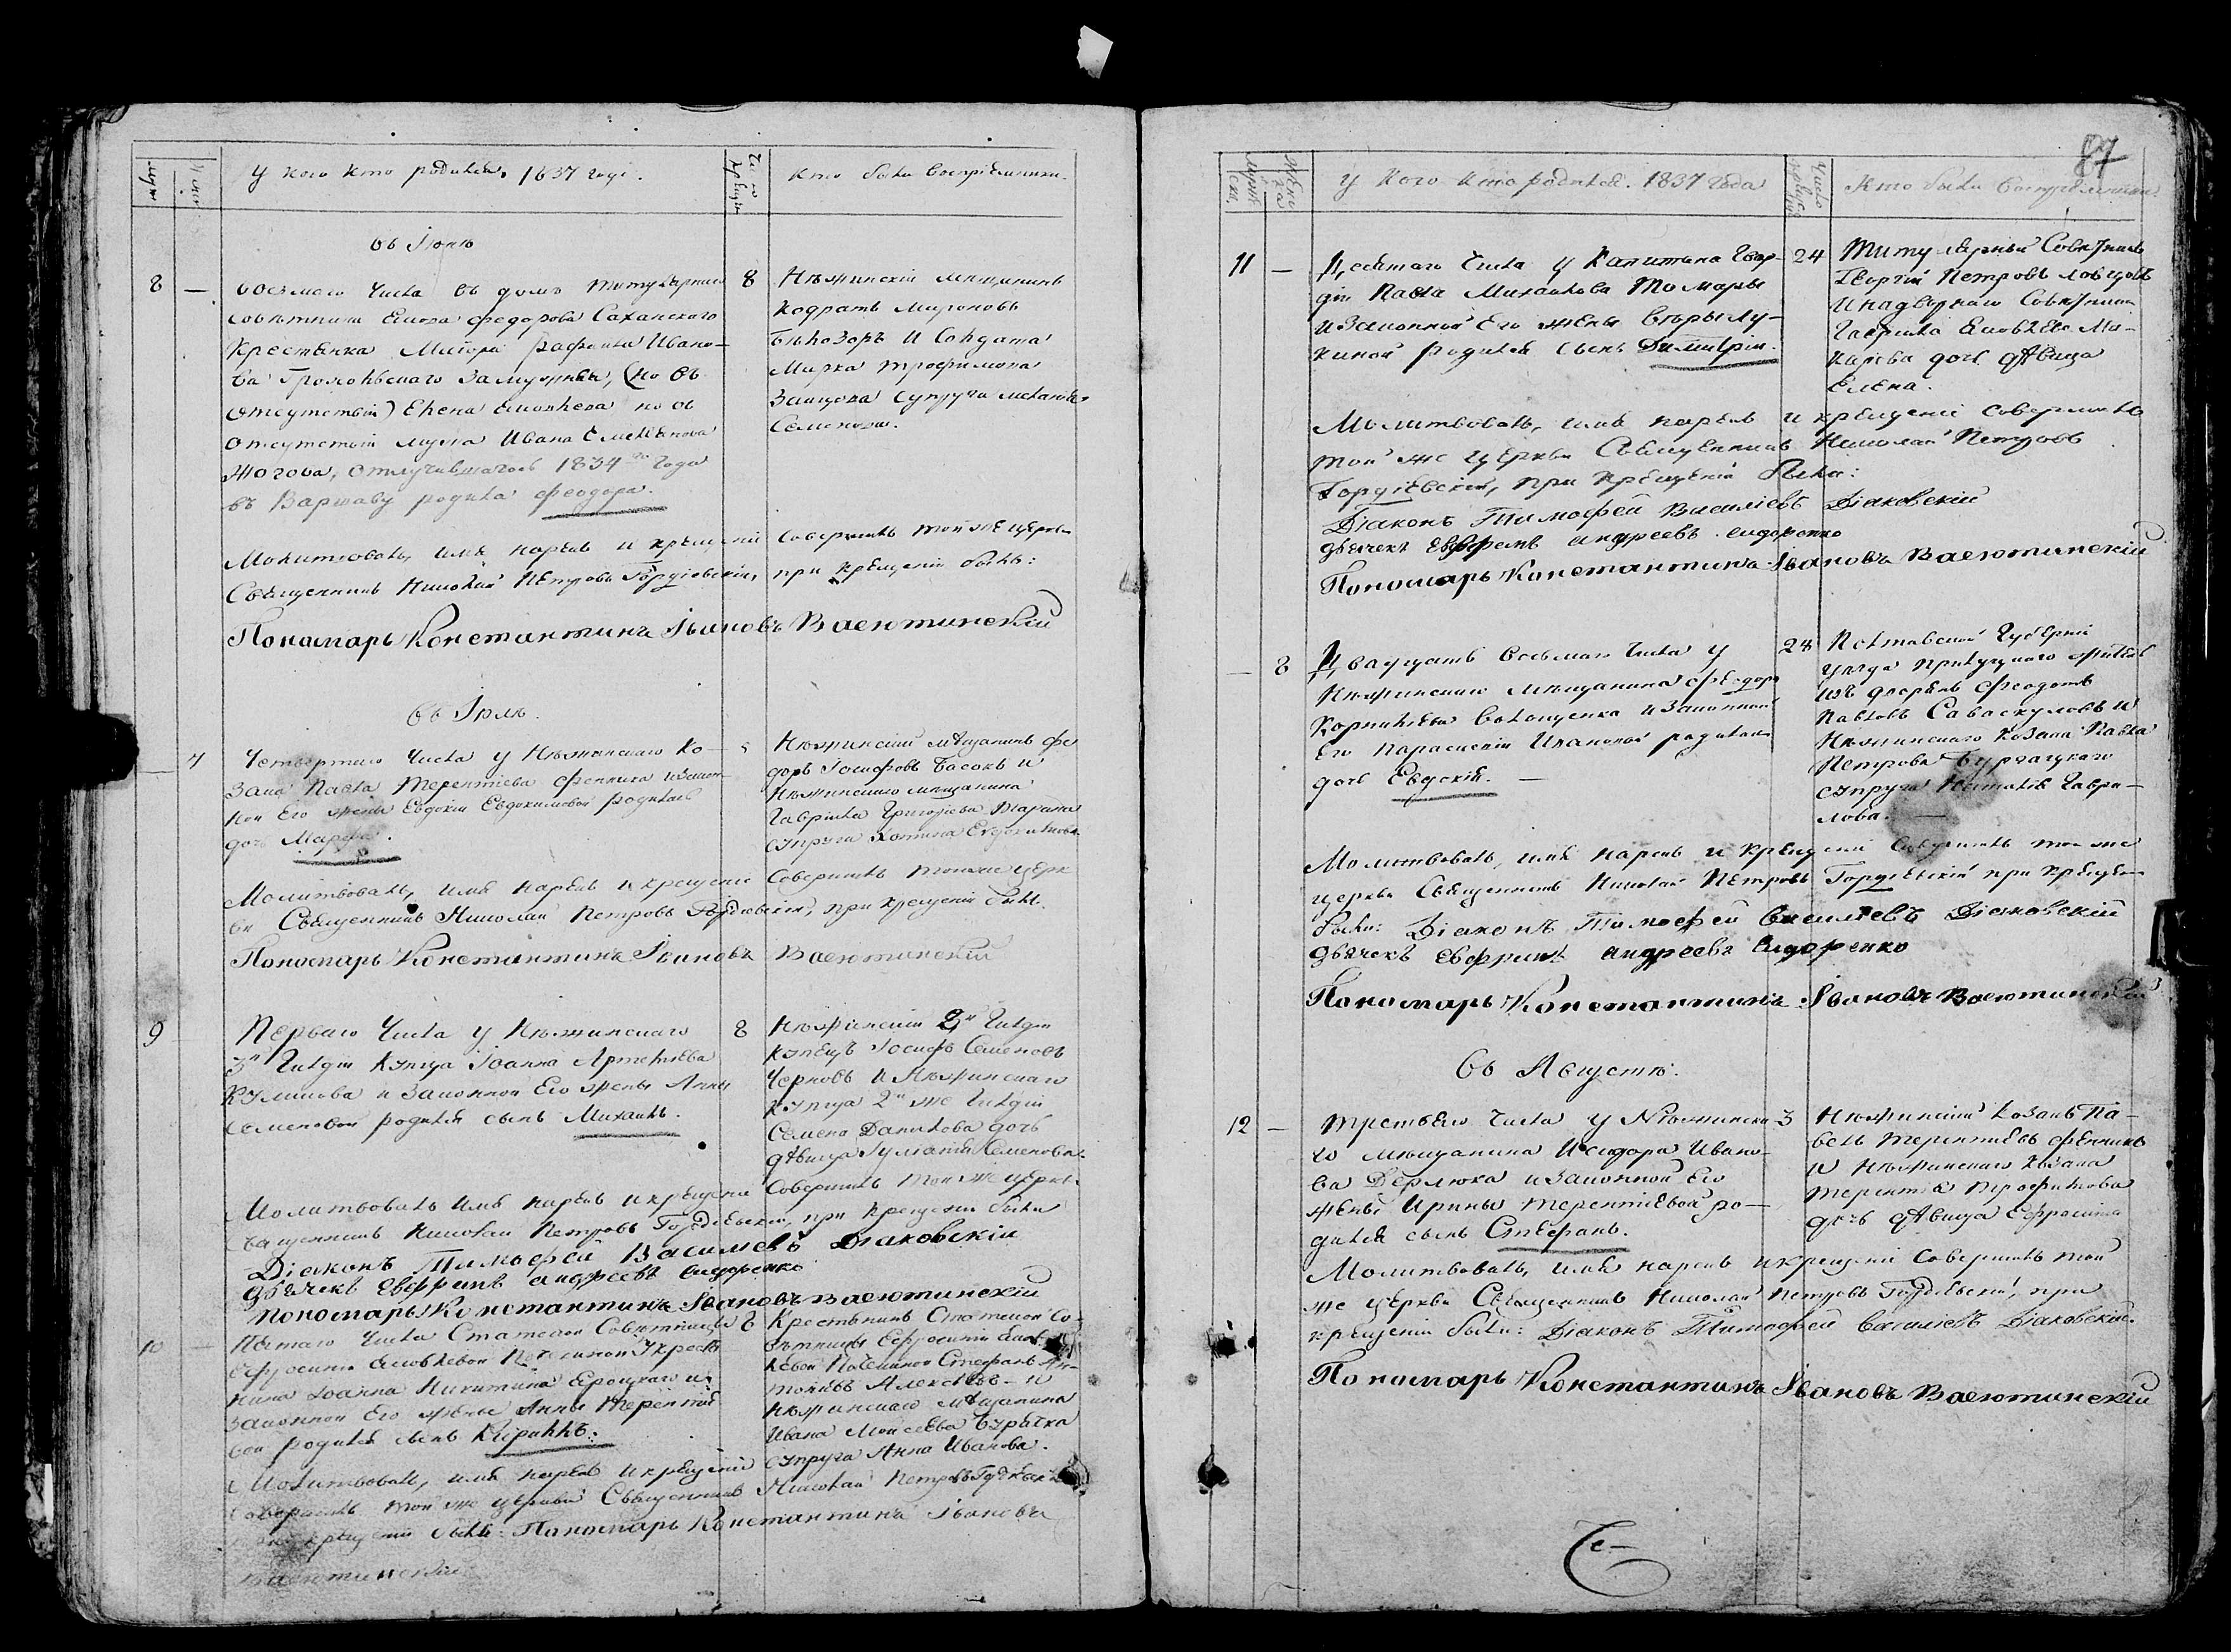 У кого кто родился. 1837 году.
Кто были восприемники.
Въ Іюню
8 — осмаго числа въ домѣ титулярнаго 8
совѣтника Федорова Саханскаго
крестьянка Маіора Рафаила Ивано-
ва Замужняя, (но въ
отсутствіи) Елена Яковлева но въ
отсутствіи мужа Ивана
Жогова, отлучившагось 1834 го года
въ Варшаву родила Феодора.
Нѣжинскій мѣщанинъ
Кодратъ Мироновъ
Бѣлозоръ и Солдата
Марка Трофимова
супруга
Семенова.
Молитвовалъ, имя нареклъ и крещеніе совершилъ той же церкви
Священникъ Николай Петровъ Гордіевскій, при крещеніи былъ:
Пономарь Константинъ Івановъ Васютинскій
Въ Іюлѣ.
— 7 Четвертаго числа у Нѣжинскаго Ко-
зака Павла Терентіева Фенника и закон-
ной его жены Евдокіи Евдокимовой родилась
дочь Марфа.
Нѣжинскій мѣщанинъ Фе
доръ Іосифовъ Басокъ и
Нѣжинскаго мѣщанина
Гавріила Григоріева
супруга
Молитвовалъ, имя нареклъ и крещеніе совершилъ той же церк
ви Священникъ Николай Петровъ Гордіевскій, при крещеніи былъ.
Пономарь Константинъ Івановъ Васютинскій
9 Перваго числа у Нѣжинскаго 8
3й гилдіи купца Іоанна Артеміева
и законной его жены Анны
Семеновой родился сынъ Михаилъ.
Нѣжинскій 2й гилдіи
купецъ Іосифъ Семеновъ
Черновъ и Нѣжинскаго
купца 2й же гилдіи
Семена Данилова дочь
дѣвица Семенова.
Молитвовалъ имя нареклъ и крещеніе совершилъ той же церкви
Священникъ Николай Петровъ Гордіевскій, при крещеніи были
Діаконъ Тимофей Василіевъ Діаковскій
дьячекъ Евфремъ Андреевъ Сидоренко
Пономарь Константинъ Івановъ Васютинскій
10 — Пятаго числа Статской Совѣтницы 8
Ефросиніи Яковлевой у крестья
нина Іоанна Никитина и
законной его жены Анны Терентіе
вой родился сынъ Кириллъ.
Крестьянинъ Статской Со-
вѣтницы Ефросиніи Яков-
левой Стефанъ
и
Нѣжинскаго мѣщанина
Ивана Моисеева
супруга Анна Иванова.
Молитвовалъ, имя нареклъ и крещеніе
совершилъ той же церкви Священникъ Николай Петровъ Гордіевскій
при крещеніи былъ: Пономарь Константинъ Івановъ
Васютинскій
87
У кого кто родился. 1837 года
Кто были восприемники.
11 — Десятаго числа у Капитана Гвар- 24
діи Павла Михайлова Томары
и законной его жены Вѣры Лу-
киной родился сынъ Димитрій.
Титулярный Совѣтникъ
Георгій Петровъ
и надворнаго Совѣтника
Гаврила Яковлева Ма-
карова дочь дѣвица
Елена.
Молитвовалъ, имя нареклъ и крещеніе совершилъ
той же церкви Священникъ Николай Петровъ
Гордіевскій, при крещеніи были:
Діаконъ Тимофей Василіевъ Діаковскій
дьячекъ Евфремъ Андреевъ Сидоренко
Пономарь Константинъ Івановъ Васютинскій
— 8 Двадцать восьмаго числа у 28
Нѣжинскаго мѣщанина Феодора
Корнилѣева и законной
его Параскевіи Ивановой родилась
дочь Евдокія. —
Полтавской Губерніи
уѣзда Прилуцкаго житель
изъ дворянъ Феодотъ
Павловъ и
Нѣжинскаго Козака Павла
Петрова
супруга Наталія Гаври-
лова. —
Молитвовалъ, имя нареклъ и крещеніе совершилъ той же
церкви Священникъ Николай Петровъ Гордіевскій при крещеніи
были: Діаконъ Тимофей Василіевъ Діаковскій
дьячекъ Евфремъ Андреевъ Сидоренко
Пономарь Константинъ Івановъ Васютинскій
Въ Августѣ.
12 — Третьяго числа у Нѣжинска- 3
го мѣщанина Исидора Ивано-
ва Дерлюка и законной его
жены Ирины Терентіевой ро-
дился сынъ Стефанъ.
Нѣжинскій Козакъ Па-
велъ Терентіевъ Фенникъ
и Нѣжинскаго Козака
Терентія Трофимова
дочь дѣвица Ефросинія
Молитвовалъ, имя нареклъ и крещеніе совершилъ той
же церкви Священникъ Николай Петровъ Гордіевскій, при
крещеніи были: Діаконъ Тимофей Василіевъ Діаковскій.
Пономарь Константинъ Івановъ Васютинскій